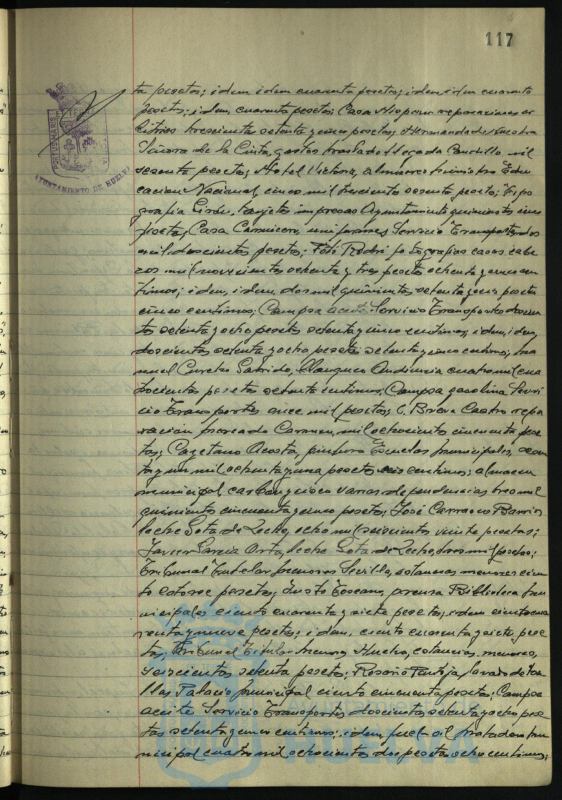 117
AYUNTAMIENTO DE HUELVA
ta pesetas; idem idem cuarenta pesetas; idem idem cuarenta
pesetas; idem, cuarenta pesetas; Casa reparaciones
trescientas setenta y cinco pesetas; Hermandad Nuestra
Señora de la Cinta, gastos traslado Caudillo mil
sesenta pesetas; Hotel Victoria, almuerzo Ministro Edu
cacion Nacional, cinco mil trescientas sesenta pesetas; Tipo
grafia Girón, tarjetas impresas Ayuntamiento quinientas cinco
pesetas; Casa uniformes Servicio Transportes dos
mil doscientas pesetas; Foto Rodri fotografias casos cabe
zas mil novecientas ochenta y tres pesetas ochenta y cinco cen
timos; idem, idem, dos mil quinientas setenta y una pesetas
cinco centimos; Campsa aceite Servicio Transportes doscien
tas setenta y ocho pesetas setenta y cinco centimos; idem, idem,
doscientas setenta y ocho pesetas setenta y cinco centimos; Ma
nuel Garrido, Audiencia cuatro mil cua
trocientas pesetas setenta centimos; Campsa gasolina Servi
cio Transportes once mil pesetas; C. Brioso Castro repa
racion mil ochocientas cincuenta pese
tas; Cayetano Acosta, pintura Escuelas municipales, sesen
ta y un mil ochenta y una pesetas seis centimos; almacen
municipal carbon y cisco varias dependencias tres mil
quinientas cincuenta y cinco pesetas; José Carrasco Barrios
leche Gota de Leche, ocho mil seiscientas veinte pesetas;
Javier Garcia Orta, leche Gota de Leche, doce mil pesetas;
Tribunal Tutelar menores Sevilla, estancias menores cien
to catorce pesetas; Justo Toscano, prensa Biblioteca mu
nicipales ciento cuarenta y siete pesetas; idem ciento cua
renta y nueve pesetas; idem, ciento cuarenta y siete pese
tas; Tribunal Tutelar Menores Huelva, estancias, menores,
seiscientas setenta pesetas; Rosario Pantoja, lavado de toa
llas Palacio municipal ciento cincuenta pesetas; Campsa
aceite Servicio Transportes doscientas setenta y ocho pese
tas setenta y cinco centimos; idem, fuel-oil Matadero mu
nicipal cuatro mil ochocientas dos pesetas ocho centimos;